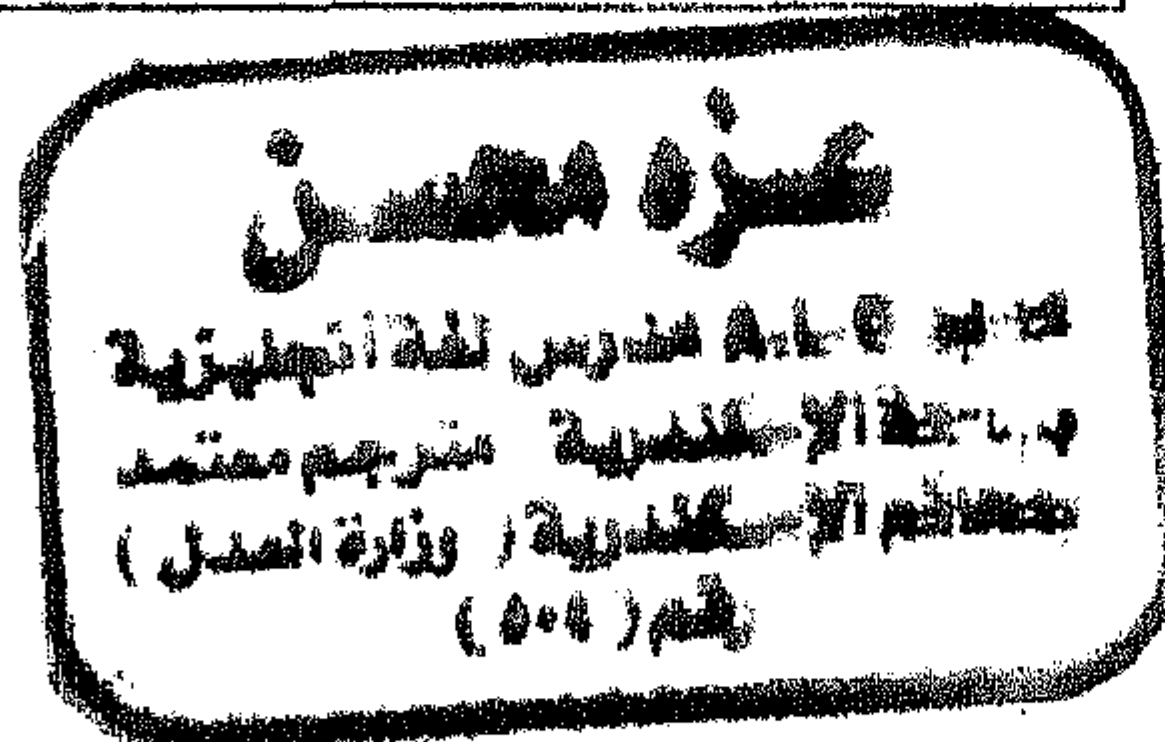 عزه محسن
مدرس لغة انجليزية
الاسكندرية مترجم معتمد
بمحاكم الاسكندرية ( وزارة العدل )
رقم ( ٥٠٤ )